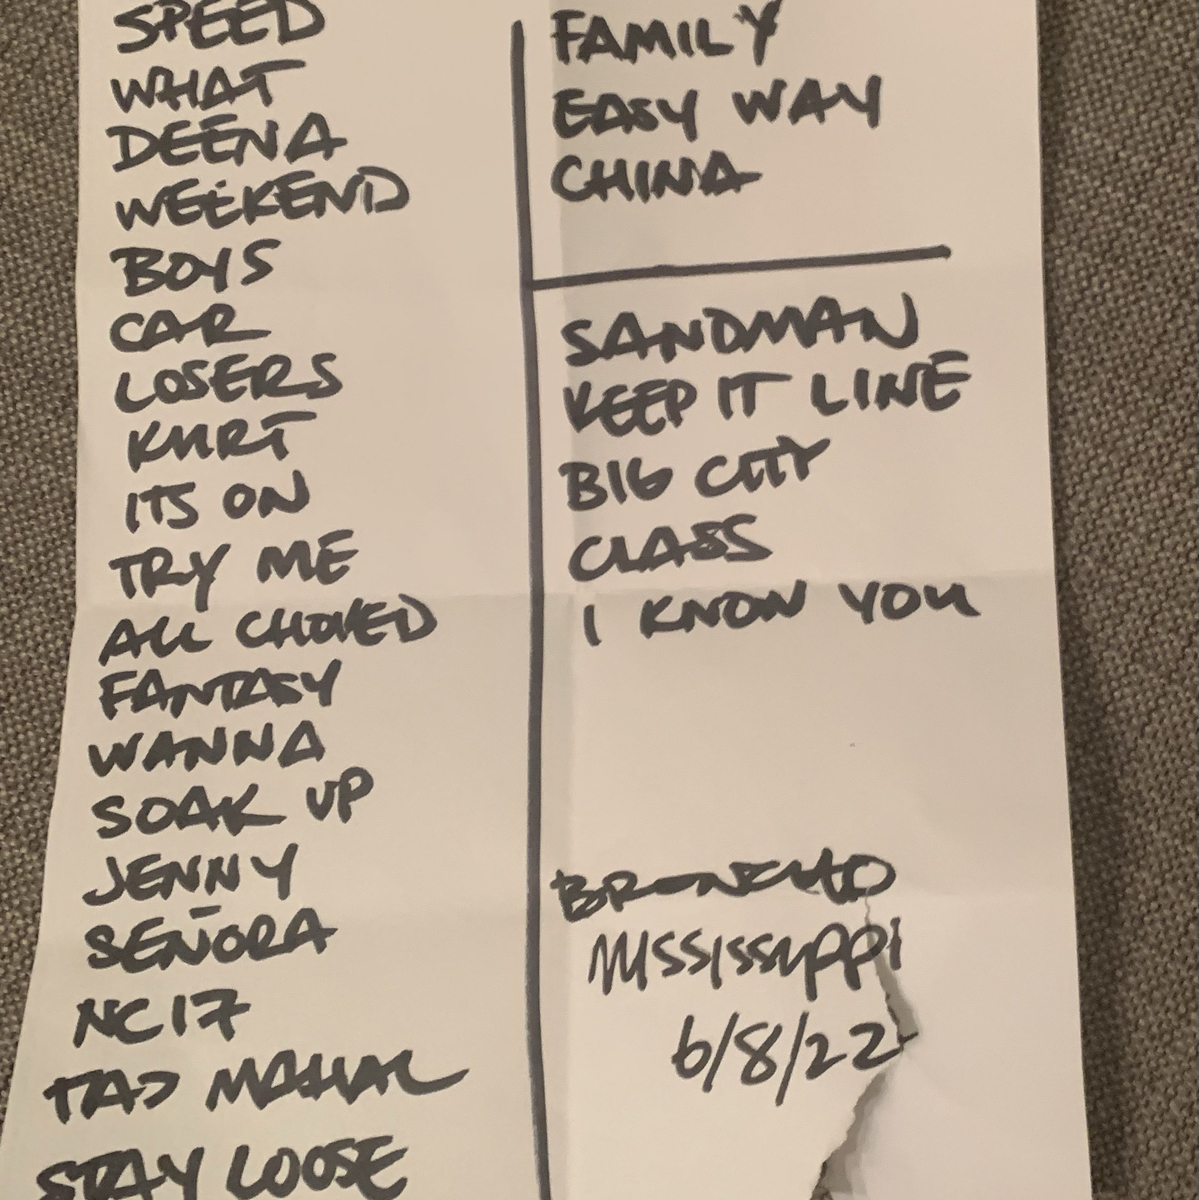 SPEED
WHAT
DEENA
WEEKEND
BOYS
CAR
LOSERS
KURT
ITS ON
TRY ME
ALL CHOKED
FANTASY
WANNA
SOAK UP
JENNY
SEÑORA
NC17
TAJ MAHAL
STAY LOOSE
FAMILY
EASY WAY
CHINA
SANDMAN
KEEP IT LINE
BIG CITY
CLASS
I KNOW YOU
BRONCHO
MISSISSIPPI
6/8/22